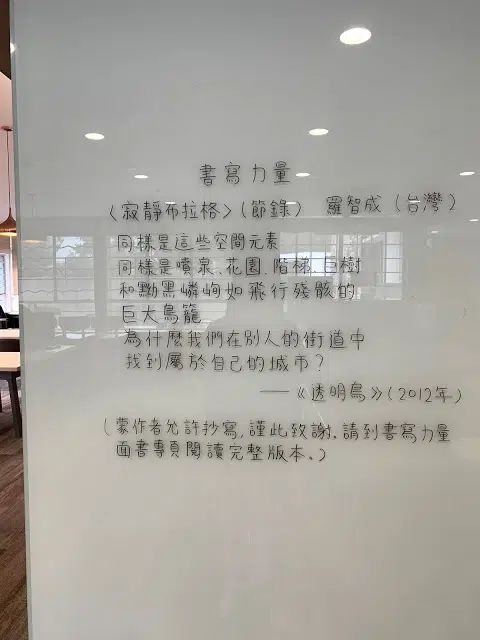 書寫力量
〈寂靜布拉格〉(節錄) 羅智成(台灣)
同樣是這些空間元素
同樣是噴泉、花園、階梯、巨樹
和黝黑嶙峋如飛行殘骸的
巨大鳥籠
為什麼我們在別人的街道中
找到屬於自己的城市?
——《透明鳥》(2012年)
(蒙作者允許抄寫,謹此致謝。請到書寫力量
面書專頁閱讀完整版本。)